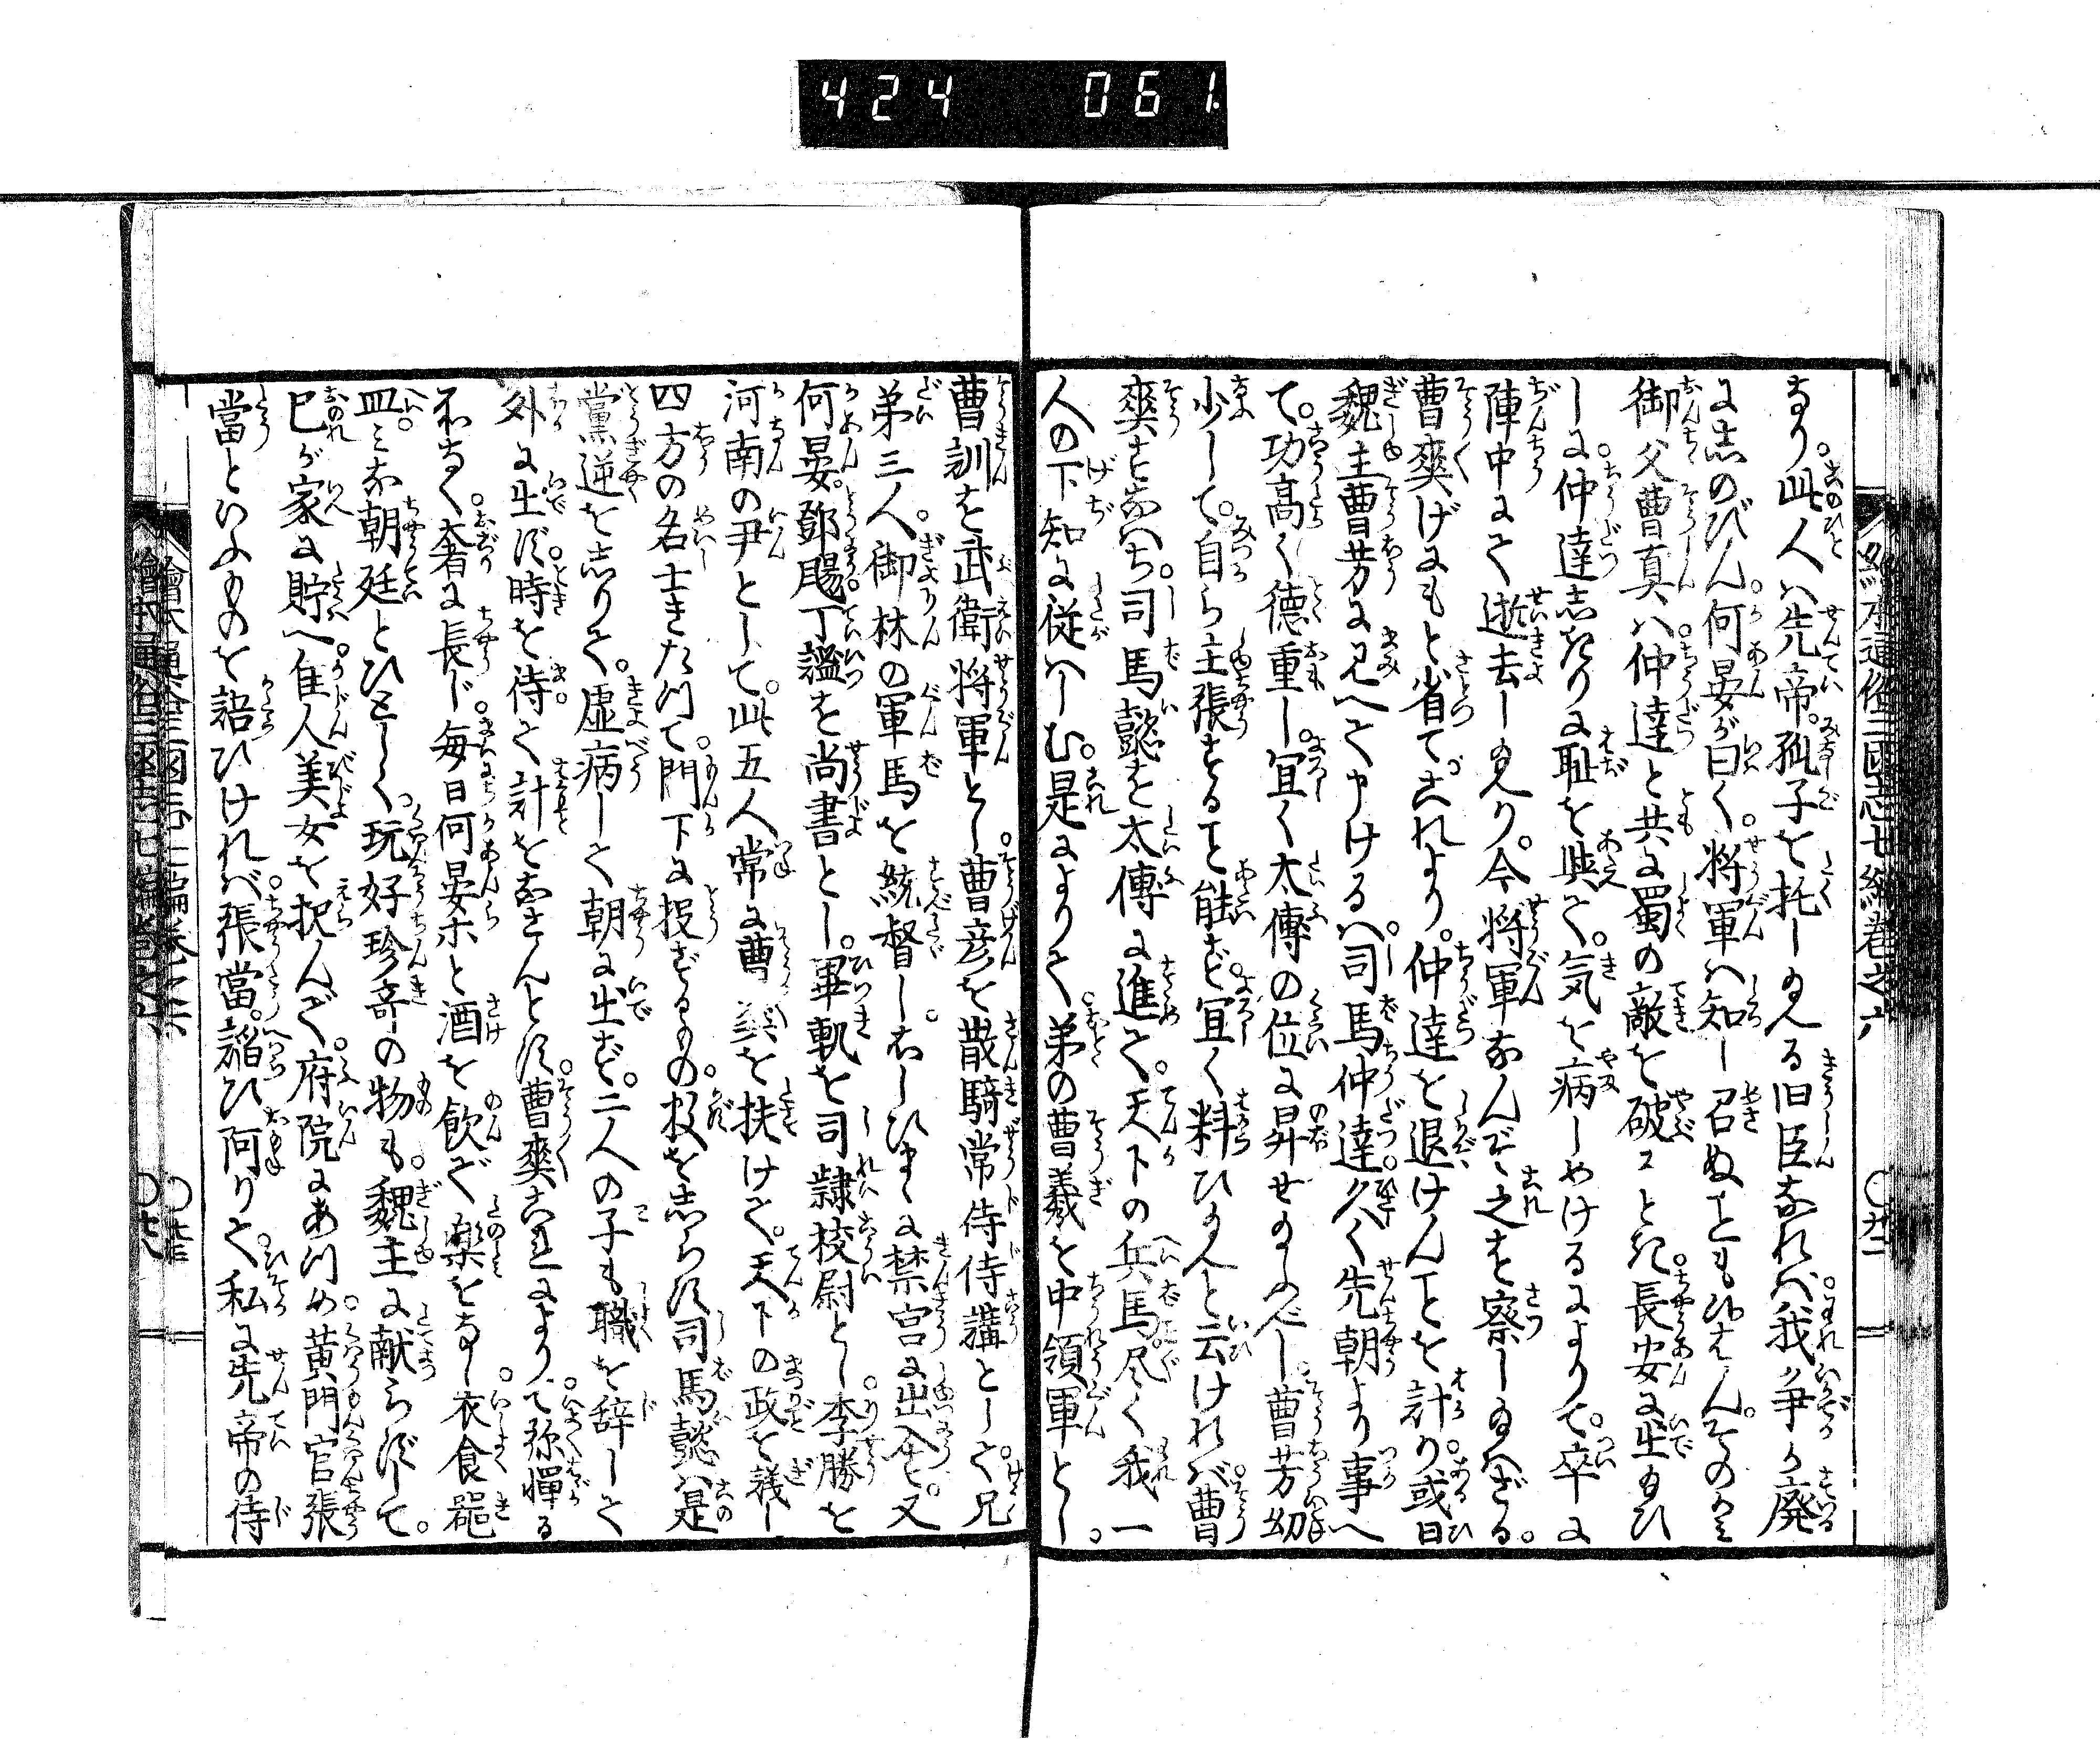 424 061.
なり。此人ハ先帝。孤子を托し玉へる旧臣なれバ。我争か廃
に忍のびん。何晏が曰く。将軍ハ知し召ぬことも候はん。そのかミ
御父曹真ハ。仲達と共に蜀の敵を破ことき。長安に出玉ひ
しに。仲達しきりに恥を與て。気を病しやけるによりて。卒に
陣中にて逝去し玉へり。今将軍なんぞ之を察し玉ハざる。
曹爽げにもと省て。これより。仲達を退けんことを計り。或日
魏主曹芳に見へて申けるハ。司馬仲達。久く先朝より事へ
て。功高く徳重し。宜く太傅の位に昇せ玉ふべし。曹芳幼
少して。自ら主張すること能ず。宜く料ひ玉へと云けれバ。曹
爽すなハち。司馬懿を太傅に進て。天下の兵馬。尽く我一
人の下知に従ハしむ。是によりて。弟の曹羲を中領軍とし。
曹訓を武衛将軍とし。曹彦を散騎常侍侍講として。兄
弟三人。御林の軍馬を統督し。おしひまゝに禁宮に出入す。又
何晏。鄧颺。丁謐を尚書とし。畢軌を司隷校尉とし。李勝を
河南の尹として。此五人常に曹爽を扶けて。天下の政を議し
四方の名士きたつて。門下に投ずるもの。数を志らず。司馬懿ハ是
黨逆を志りて。虚病して朝に出ず。二人の子も職を辞して
外に出ず。時を待て計をなさんとす。曹爽これによりて。弥憚る
不なく。奢に長じ。毎日何晏ホと酒を飲で楽をなし。衣食器
皿。ミな朝廷とひとしく。玩好珍奇の物も。魏主に献らずして。
己が家に貯へ。佳人美女を択んで。府院にあつめ。黄門官張
當といふものを語ひけれバ。張當。謟ひ阿りて。私に先帝の侍